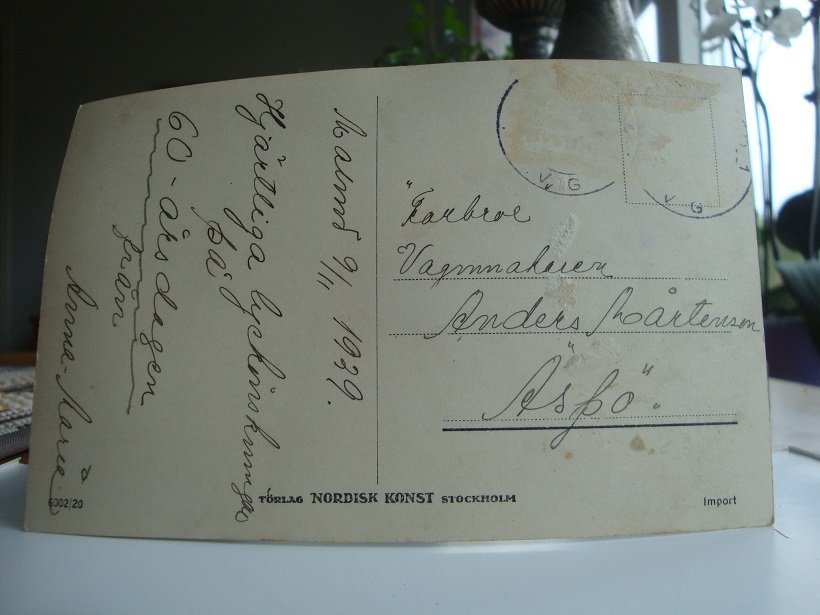 Malmö 9/11 1939.
Hjärtliga lyckönskningar
på
60-årsdagen
från
Anna-Maria
"Farbror
Vagnmakaren
Anders Mårtenson
Äspö".
V. G
V G
6002/20
FÖRLAG NORDISK KONST STOCKHOLM
Import